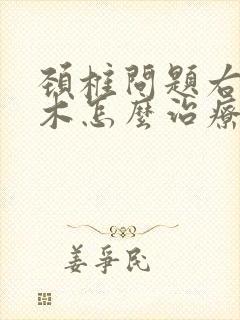 頚椎問題右
木怎麼治療
姜爭民